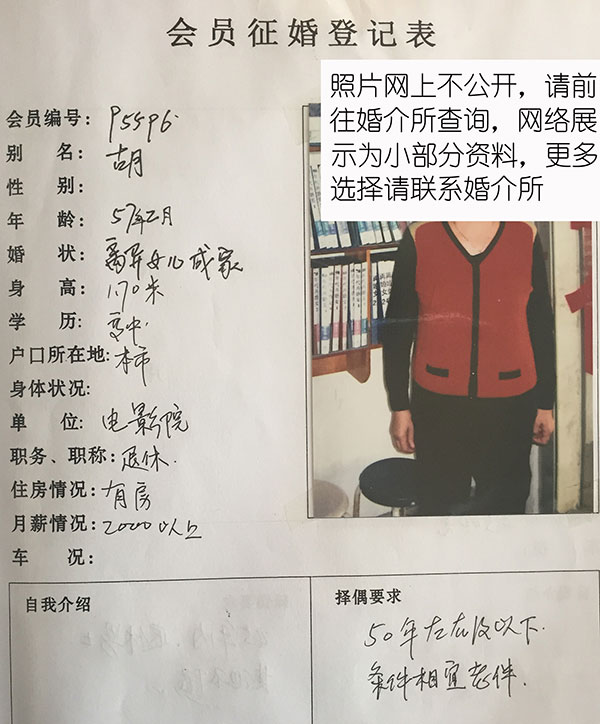 会员征婚登记表
照片网上不公开，请前
往婚介所查询，网络展
示为小部分资料，更多
选择请联系婚介所
会员编号：P5596
别 名：胡
性 别：
年 龄：57年二月
婚 状：离异女儿成家
身 高：1.70米
学 历：高中
户口所在地：本市
身体状况：
单 位：电影院
职务、职称：退休.
住房情况：有房
月薪情况：2000以上
车 况：
自我介绍
择偶要求
50年左右及以下.
条件相宜老伴.